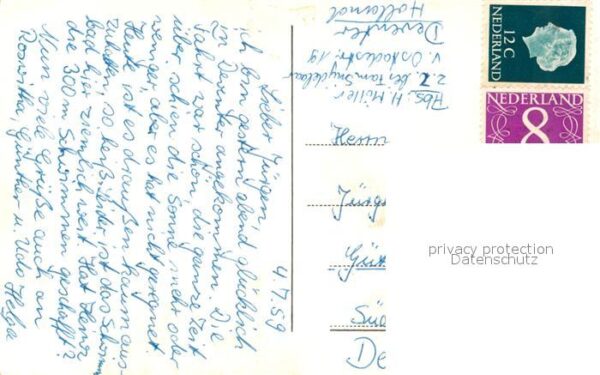 4.7.59
Lieber Jürgen,
ich bin gestern abend glücklich
in Deventer angekommen. Die
Fahrt war schön, die ganze Zeit
über schien die Sonne, mehr oder
weniger, aber es hat nicht geregnet.
Heute ist es draußen kaum aus-
zuhalten, so heiß. Leider ist das Schwimm-
bad hier ziemlich weit. Hat Heinz
die 300m Schwimmen geschafft?
Nun viele Grüße auch an
Roswitha, Günther u. Udo Helga
Abs. H. Müller
z.Z. bei Fam.
v. Ostadestr. 19
Deventer
Holland
12 C
NEDERLAND
NEDERLAND
8
Herrn
Jürg
Güt
Süd
De
privacy protection
Datenschutz